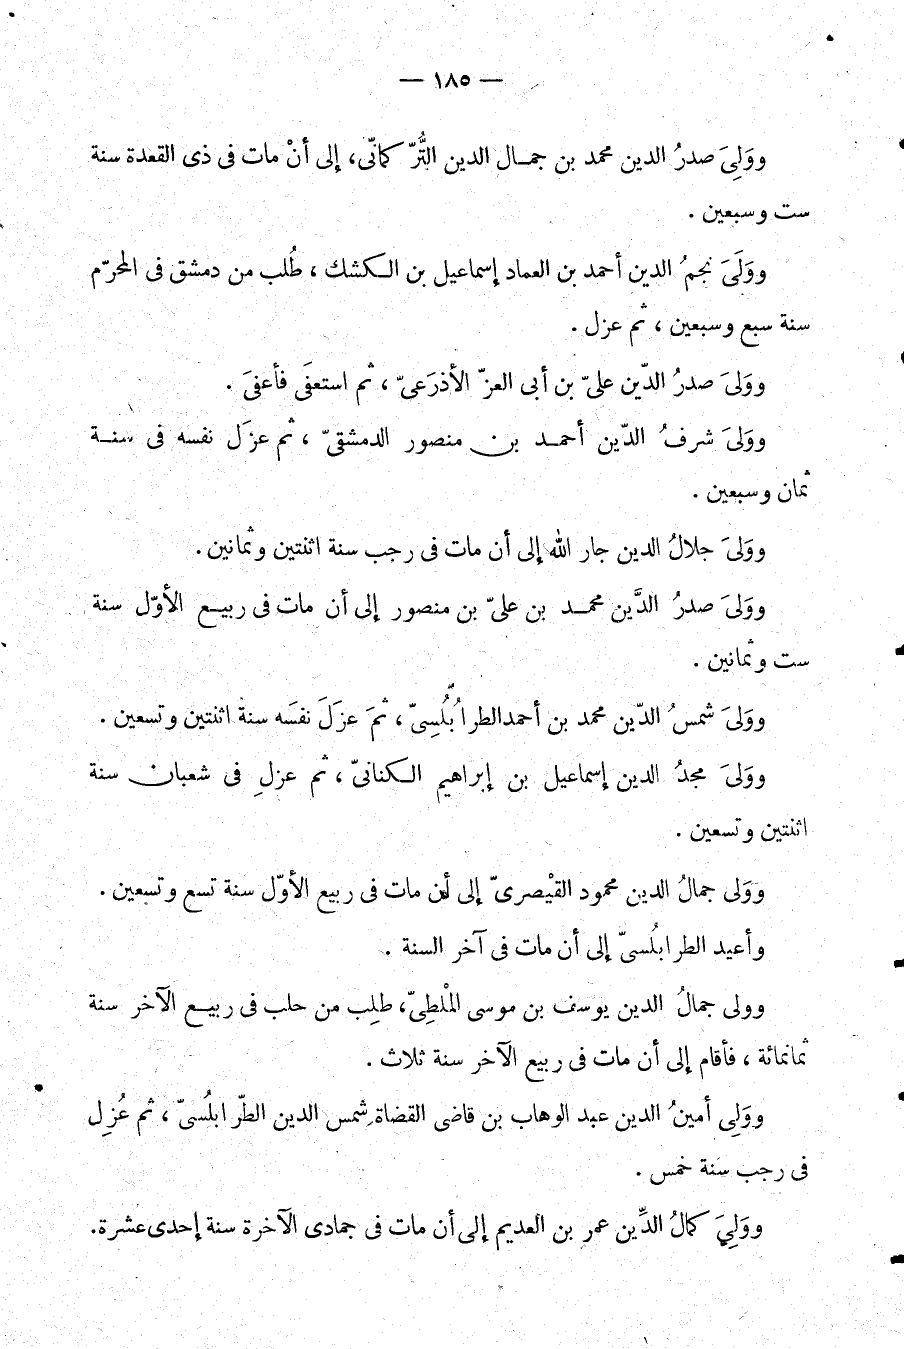 — ١٨٥ —
ووَلِىَ صدرُ الدين محمد بن جمال الدين التُّرّكمانّى، إلى أنْ مات فى ذى القعدة سنة
ست وسبعين .
ووَلَىَ نجمُ الدين أحمد بن العماد إسماعيل بن الكشك ، طُلب من دمشق فى المحرّم
سنة سبع وسبعين ، ثم عزل .
ووَلىَ صدرُ الدّين علىّ بن أبى العزّ الأذرَعىّ ، ثم استعفَى فأعفىَ .
ووَلىَ شرفُ الدّين أحمد بن منصور الدمشقىّ ، ثم عزَل نفسه فى سنة
ثمان وسبعين .
ووَلىَ جلالُ الدين جار الله إلى أن مات فى رجب سنة اثنتين وثمانين .
ووَلىَ صدرُ الدَّين محمد بن علىّ بن منصور إلى أن مات فى ربيع الأوّل سنة
ست وثمانين .
ووَلىَ شمسُ الدّين محمد بن أحمد الطرابُلُسِىّ ، ثمَ عزَلَ نفسَه سنة اثنتين وتسعين .
ووَلىَ مجدُ الدين إسماعيل بن إبراهيم الكنانىّ ، ثم عزلِ فى شعبان سنة
اثنتين وتسعين .
ووَلى جمالُ الدين محمود القيْصرىّ إلى أن مات فى ربيع الأوّل سنة تسع وتسعين .
وأعيد الطرابلُسىّ إلى أن مات فى آخر السنة .
وولى جمالُ الدين يوسف بن موسى المْلطِىّ، طلِب من حلب فى ربيع الآخر سنة
ثمانمائة ، فأقام إلى أن مات فى ربيع الآخر سنة ثلاث .
ووَلِى أمينُ الدين عبد الوهاب بن قاضى القضاة شمس الدين الطّرابلُسىّ ، ثم عُزِل
فى رجب سنة خمس .
ووَلِيَ كمالُ الدِّين عمر بن العديم إلى أن مات فى جمادى الآخرة سنة إحدى عشرة.